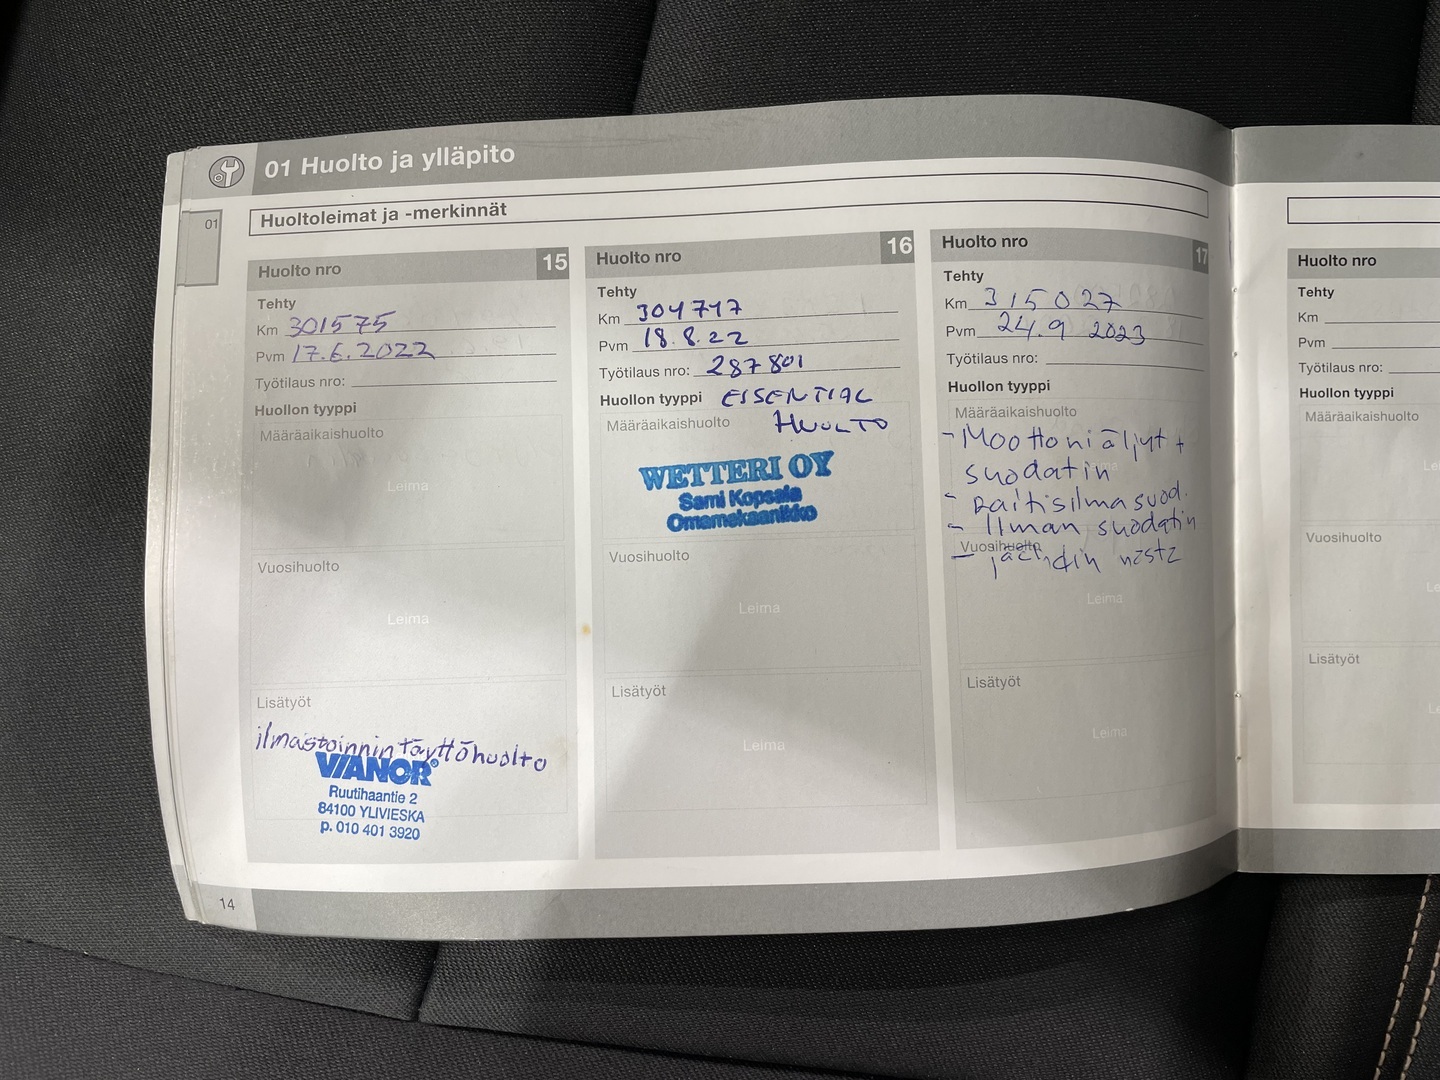 01 Huolto ja ylläpito
01
Huoltoleimat ja -merkinnät
Huolto nro 15
Tehty
Km 301575
Pvm 17.6.2022
Työtilaus nro:
Huollon tyyppi
Määräaikaishuolto
Leima
Vuosihuolto
Leima
Lisätyöt
ilmastoinnin täyttöhuolto
VIANOR®
Ruutihaantie 2
84100 YLIVIESKA
p. 010 401 3920
14
Huolto nro 16
Tehty
Km 304747
Pvm 18.8.22
Työtilaus nro: 287801
Huollon tyyppi ESSENTIAL
Määräaikaishuolto HUOLTO
WETTERI OY
Sami Kopsala
Omamekaanikko
Vuosihuolto
Leima
Lisätyöt
Leima
Huolto nro 17
Tehty
Km 315027
Pvm 24.9 2023
Työtilaus nro:
Huollon tyyppi
Määräaikaishuolto
- Moottoriäljyt +
suodatin
- raitisilmasuod.
- Ilman suodatin
Vuosihuolto
- jäähdin neste
Leima
Lisätyöt
Leima
Huolto nro
Tehty
Km
Pvm
Työtilaus nro:
Huollon tyyppi
Määräaikaishuolto
Vuosihuolto
Lisätyöt